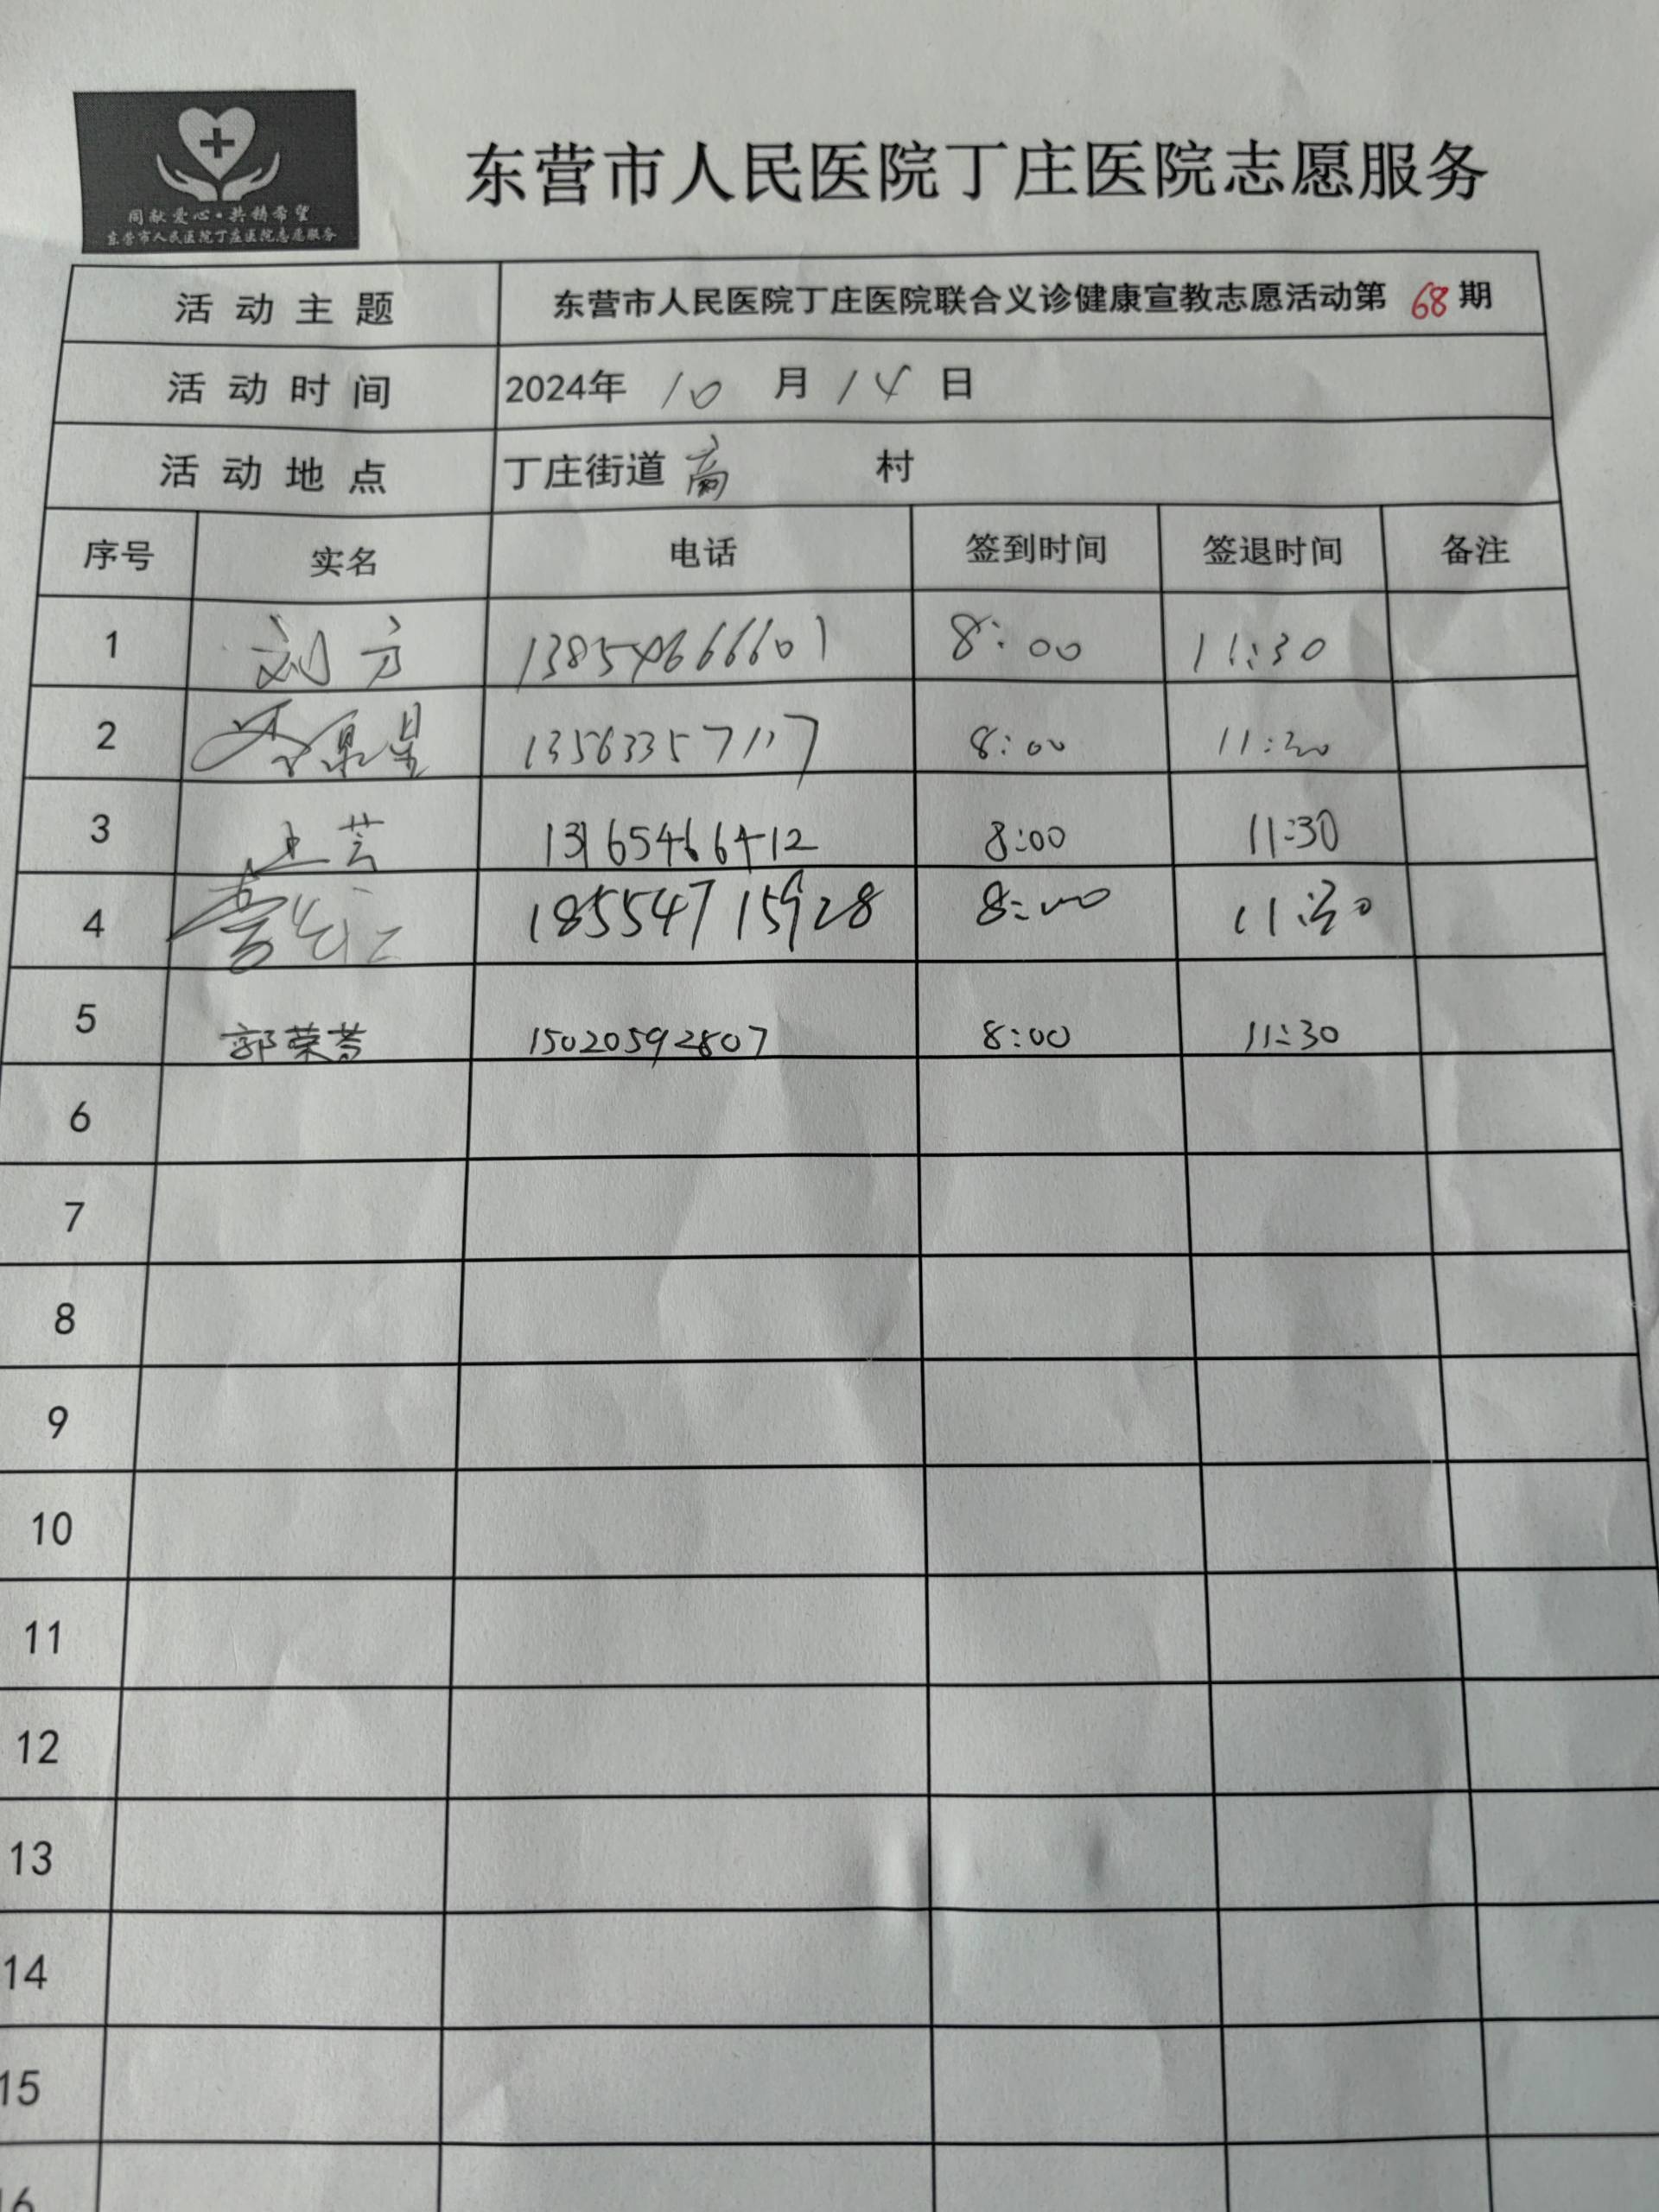 同献爱心·共铸希望
东营市人民医院丁庄医院志愿服务
东营市人民医院丁庄医院志愿服务
活动主题 东营市人民医院丁庄医院联合义诊健康宣教志愿活动第 68 期
活动时间 2024年 10 月 14 日
活动地点 丁庄街道 村
序号 实名 电话 签到时间 签退时间 备注
1 刘方 13854666601 8:00 11:30
2 13563357117 8:00 11:30
3 芸 13165466412 8:00 11:30
4 18554715928 8:00 11:30
5 郭荣芳 15020592807 8:00 11:30
6
7
8
9
10
11
12
13
14
15
16